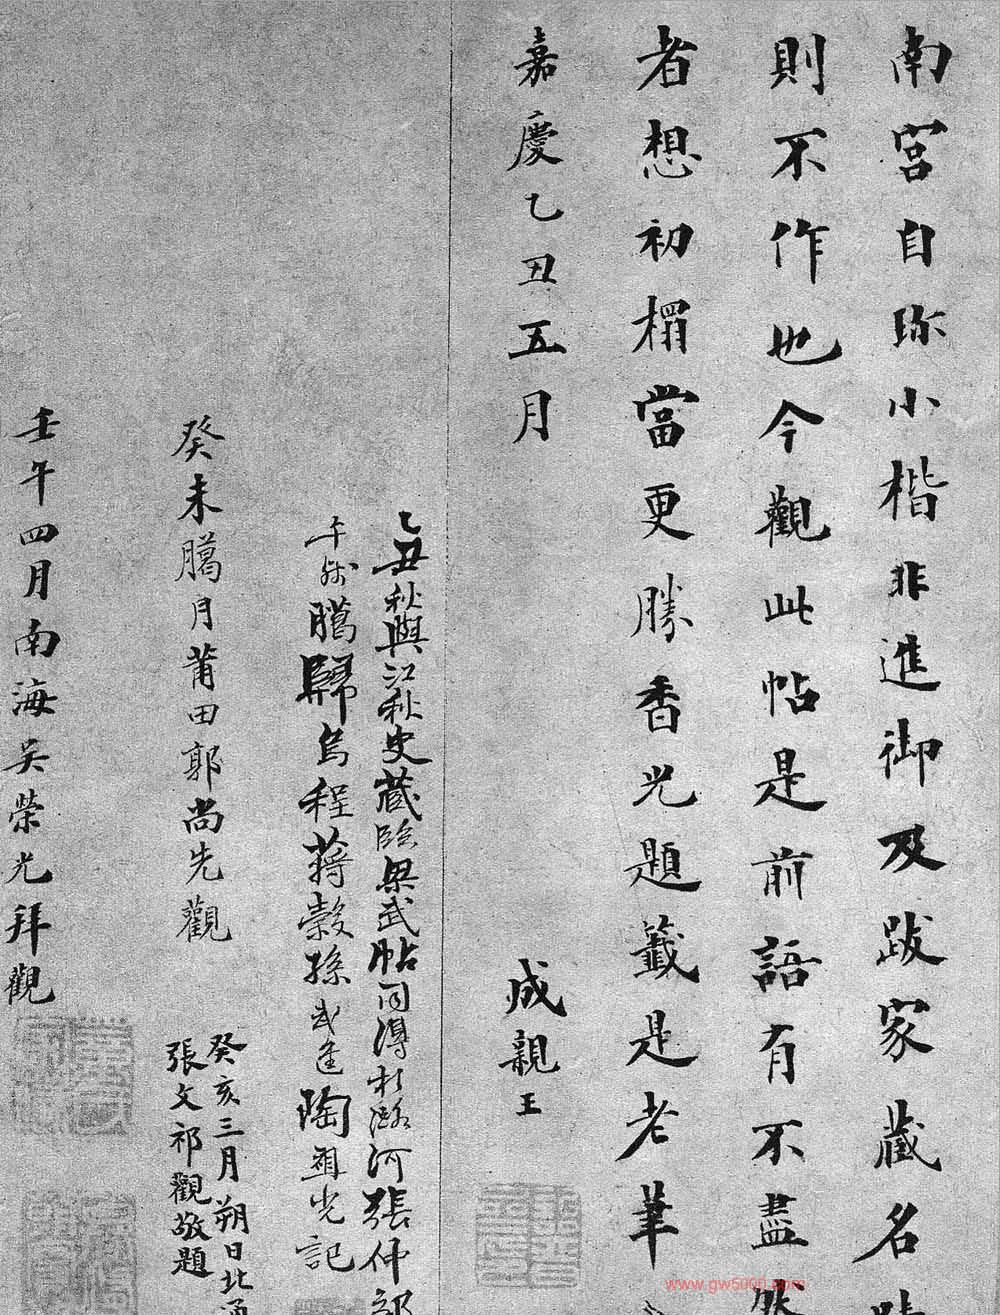 南宮自珎小楷非進御及跋家藏名
則不作也今觀此帖是前語有不盡
者想初榻當更勝香光題籤是老筆
嘉慶乙丑五月
成親王
乙丑秋與江秋史藏臨梁武帖同得於潞河張仲
歸烏程蔣穀孫武進陶祖光記
癸未臈月莆田郭尚先觀
癸亥三月朔日北通
張文祁觀敬題
壬午四月南海吳榮光拜觀
www.gw5000.com